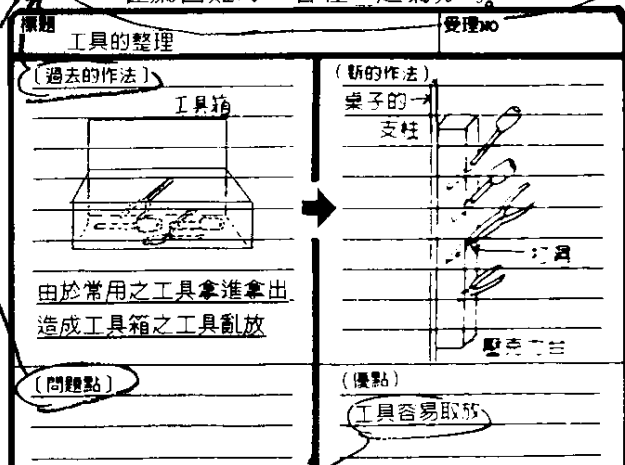 標題
工具的整理
受理NO
（過去的作法）
工具箱
由於常用之工具拿進拿出
造成工具箱之工具亂放
（問題點）
（新的作法）
桌子的
支柱
打洞
壓克力台
（優點）
工具容易取放